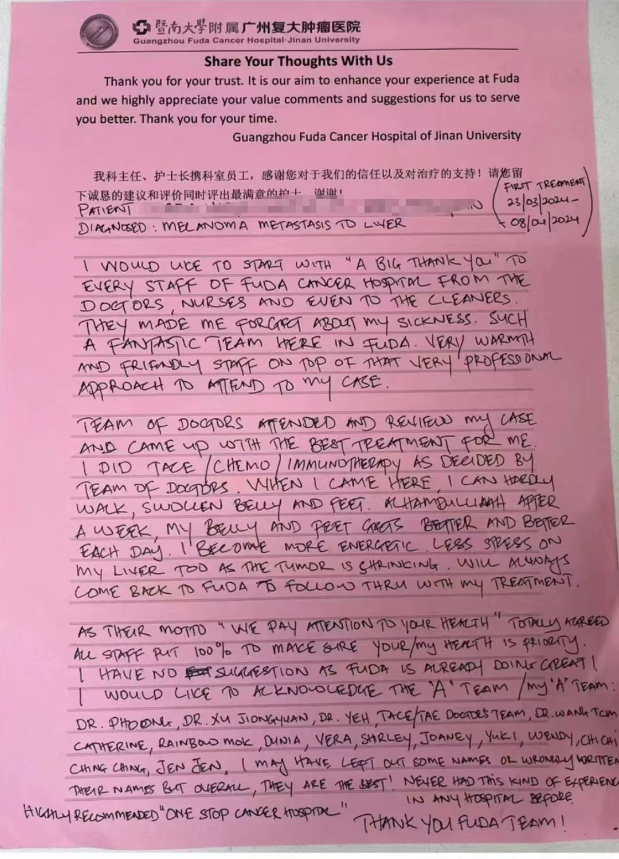 暨南大學附属广州复大肿瘤医院
Guangzhou Fuda Cancer Hospital·Jinan University
Share Your Thoughts With Us
Thank you for your trust. It is our aim to enhance your experience at Fuda
and we highly appreciate your value comments and suggestions for us to serve
you better. Thank you for your time.
Guangzhou Fuda Cancer Hospital of Jinan University
我科主任、护士长携科室员工,感谢您对于我们的信任以及对治疗的支持!请您留
下诚恳的建议和评价同时评出最满意的护士,谢谢!
(FIRST TREATMENT
23/03/2024 –
08/04/2024)
PATIENT
DIAGNOSED: MELANOMA METASTASIS TO LIVER
I WOULD LIKE TO START WITH "A BIG THANK YOU" TO
EVERY STAFF OF FUDA CANCER HOSPITAL FROM THE
DOCTORS, NURSES AND EVEN TO THE CLEANERS.
THEY MADE ME FORGET ABOUT MY SICKNESS. SUCH
A FANTASTIC TEAM HERE IN FUDA. VERY WARMTH
AND FRIENDLY STAFF ON TOP OF THAT VERY PROFESSIONAL
APPROACH TO ATTEND TO MY CASE.
TEAM OF DOCTORS ATTENDED AND REVIEW MY CASE
AND CAME UP WITH THE BEST TREATMENT FOR ME.
I DID TACE/CHEMO/IMMUNOTHERAPY AS DECIDED BY
TEAM OF DOCTORS. WHEN I CAME HERE, I CAN HARDLY
WALK, SWOLLEN BELLY AND FEET. ALHAMDULLIAAH AFTER
A WEEK, MY BELLY AND FEET GETS BETTER AND BETTER
EACH DAY. I BECOME MORE ENERGETIC. LESS STRESS ON
MY LIVER TOO AS THE TUMOR IS SHRINKING. WILL ALWAYS
COME BACK TO FUDA TO FOLLOW THRU WITH MY TREATMENT.
AS THEIR MOTTO "WE PAY ATTENTION TO YOUR HEALTH" TOTALLY AGREED
ALL STAFF PUT 100% TO MAKE SURE YOUR/MY HEALTH IS PRIORITY.
I HAVE NO SUGGESTION AS FUDA IS ALREADY DOING GREAT!
I WOULD LIKE TO ACKNOWLEDGE THE "A" TEAM/MY "A" TEAM:
DR. PHOONG, DR. XU JIONGYUAN, DR. YEH, TACE/TAE DOCTORS TEAM, DR. WANG TCM
CATHERINE, RAINBOW MOK, DUNIA, VERA, SHRLEY, JOANEY, YUKI, WENDY, CHI CHI
CHING CHING, JEN JEN, I MAY HAVE LEFT OUT SOME NAMES OR WRONGLY WRITTEN
THEIR NAMES BUT OVERALL, THEY ARE THE BEST! NEVER HAD THIS KIND OF EXPERIENC
IN ANY HOSPITAL BEFORE.
HIGHLY RECOMMENDED "ONE STOP CANCER HOSPITAL"
THANK YOU FUDA TEAM!